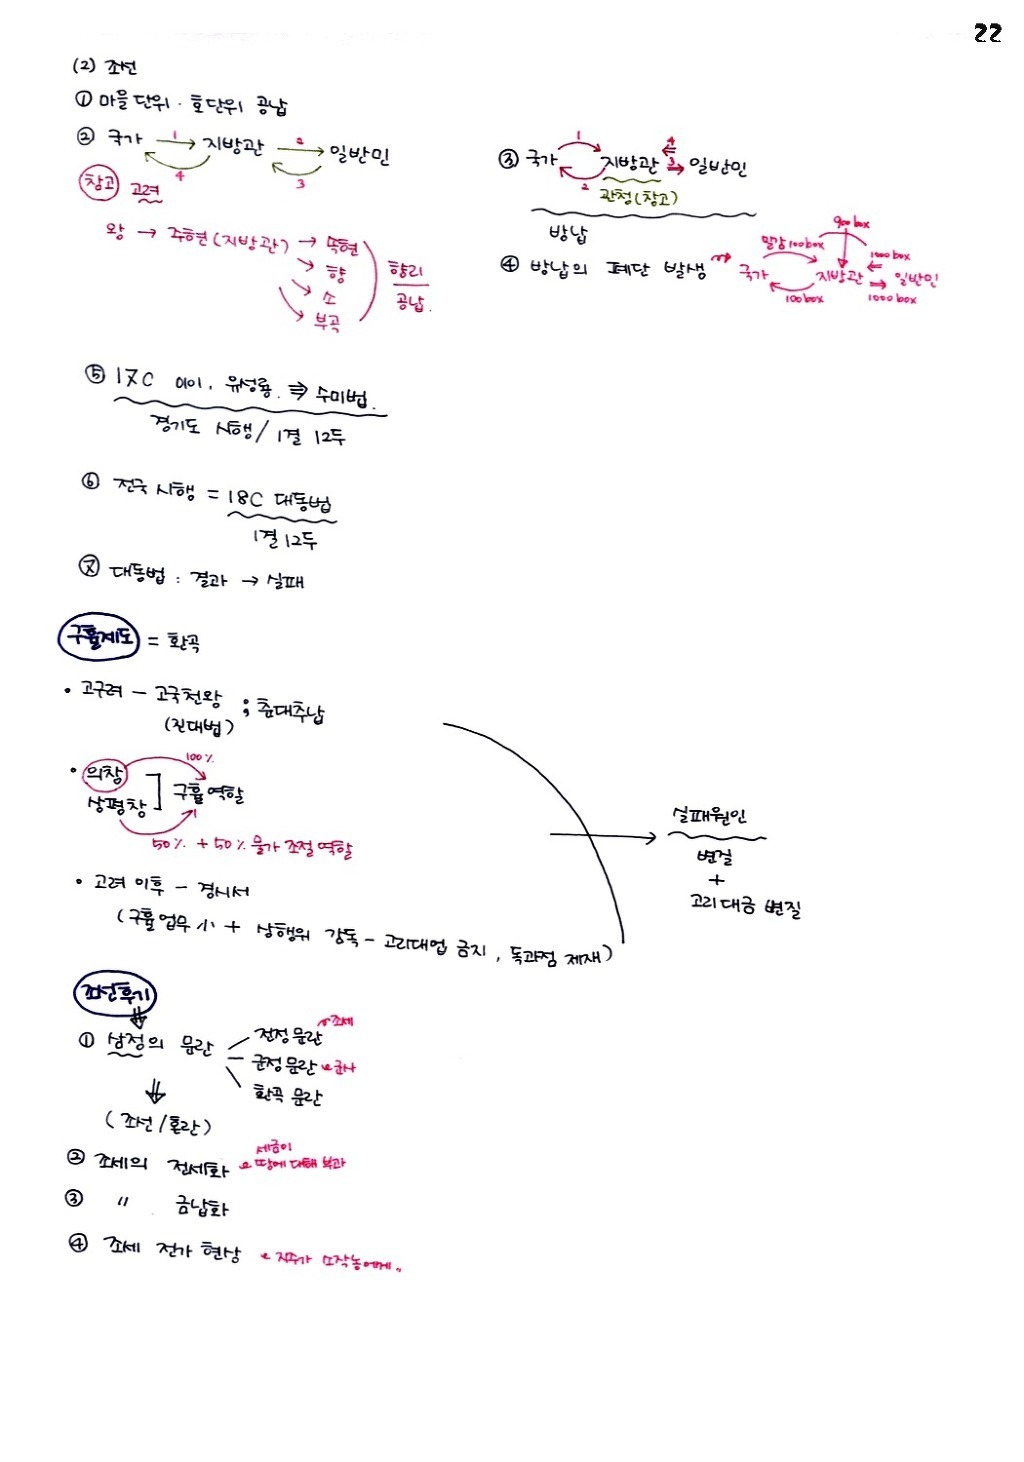 22
(2) 조선
① 마을단위 · 호단위 공납
② 국가 →1 지방관 →2 일반민
4 3
창고 고려
왕 → 주현(지방관) → 속현
→ 향
→ 소
→ 부곡
향리
공납.
③ 국가 1 2 지방관 4 3 일반민
관청(창고)
방납
④ 방납의 폐단 발생
900 box
말감 100 box 1000 box
국가 지방관 일반민
100 box 1000 box
⑤ 17C 이이, 유성룡. ⇒ 수미법.
경기도 시행 / 1결 12두
⑥ 전국 시행 = 18C 대동법
1결 12두
⑦ 대동법 : 결과 → 실패
구휼제도 = 환곡
• 고구려 - 고국천왕 ; 춘대추납
(진대법)
100%
• 의창
상평창 ] 구휼역할
50% + 50% 물가 조절 역할
• 고려 이후 - 경시서
(구휼업무 小 + 상행위 감독 - 고리대업 금지, 독과점 제재)
→ 실패원인
변질
+
고리대금 변질
조선후기
① 삼정의 문란
전정 문란 조세
군정 문란 군사
환곡 문란
(조선/혼란)
② 조세의 전세화 세금이
땅에 대해 부과
③ 〃 금납화
④ 조세 전가 현상 지주가 소작농에게..